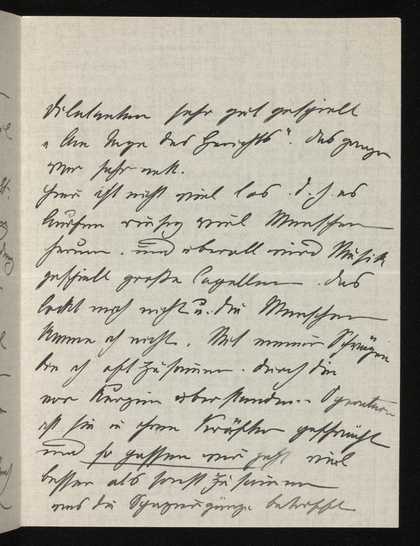 Diletanten sehr gut gespielt
„Am Tage des Gerichts“. das ganze
war sehr nett.
hier ist nicht viel los. d. h. es
laufen riesig viel Menschen
herum. und überall wird Musik
gespielt große Capellen. das
lockt mich nicht u. die Menschen
kenne ich nicht. Mit meiner Schwägerin
bin ich oft zusammen. durch die
vor Kurzem überstandene Operation
ist sie in ihren Kräften geschwächt
und so passen wir jetzt viel
besser als sonst zusammen
was die Spaziergänge betrifft